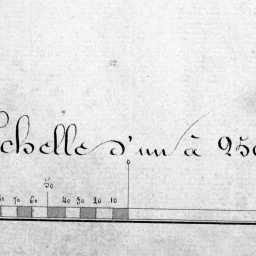 chelle d'un à 250
50
70 60 40 30 20 10
0